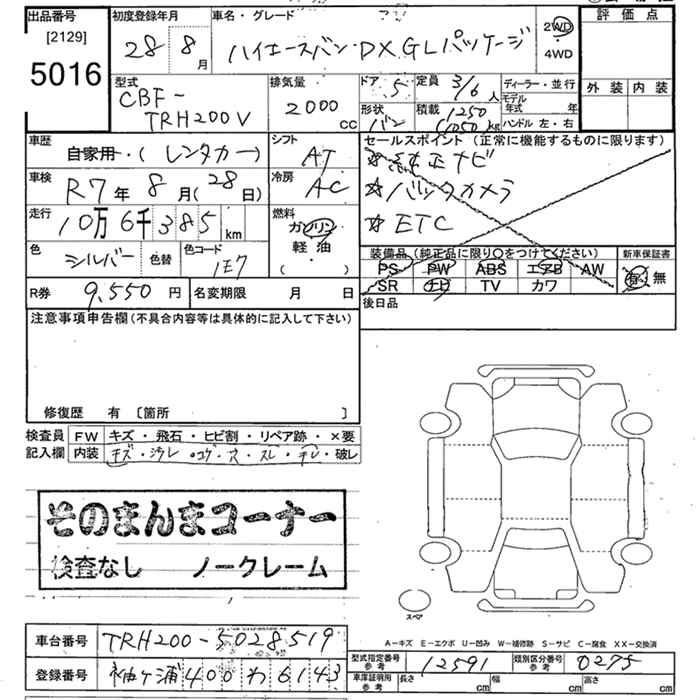 出品番号
[2129]
5016
初度登録年月
28 年 8 月
車名・グレード
ハイエースバン・DX GLパッケージ
2WD
4WD
評価点
外装 内装
型式
CBF-
TRH200V
排気量
2000 cc
ドア 5
定員 3/6 人
形状 バン
積載 1250
(1050) kg
ディーラー・並行
モデル年式 年
ハンドル 左・右
車歴
自家用・(レンタカー)
シフト
AT
車検
R7年 8月(28日)
冷房
AC
走行
10万6千385 km
燃料
ガソリン
軽油
( )
色
シルバー
色替
色コード
1E7
セールスポイント(正常に機能するものに限ります)
☆純正ナビ
☆バックカメラ
☆ETC
装備品(純正品に限り○をつけてください)
PS PW ABS エアB AW
SR ナビ TV カワ
新車保証書
有 無
R券 9,550 円
名変期限 月 日
後日品
注意事項申告欄(不具合内容等は具体的に記入して下さい)
修復歴 有 〔箇所 〕
検査員
記入欄
FW キズ・飛石・ヒビ割・リペア跡・×要
内装 キズ・汚レ・コゲ・穴・スレ・キレ・破レ
そのまんまコーナー
検査なし ノークレーム
スペア
A-キズ E-エクボ U-凹み W-補修跡 S-サビ C-腐食 XX-交換済
車台番号 TRH200-5028519
登録番号 袖ヶ浦400わ6143
型式指定番号 参考 12591
類別区分番号 参考 0275
車庫証明用 参考 長さ cm 幅 cm 高さ cm